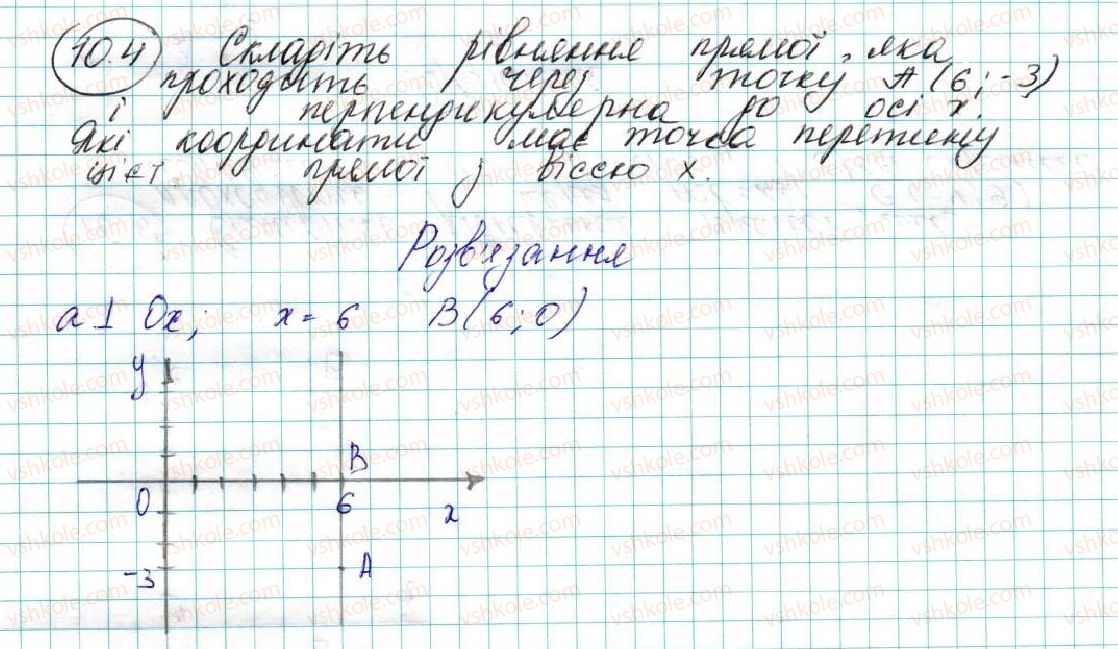 10.4 Складіть рівняння прямої, яка
проходить через точку А (6; -3)
і перпендикулярна до осі х.
Які координати має точка перетину
цієї прямої з віссю х.
Розв'язання
a ⊥ Ox; x = 6 B(6; 0)
y
B
0 6 x
-3 A
vshkole.com